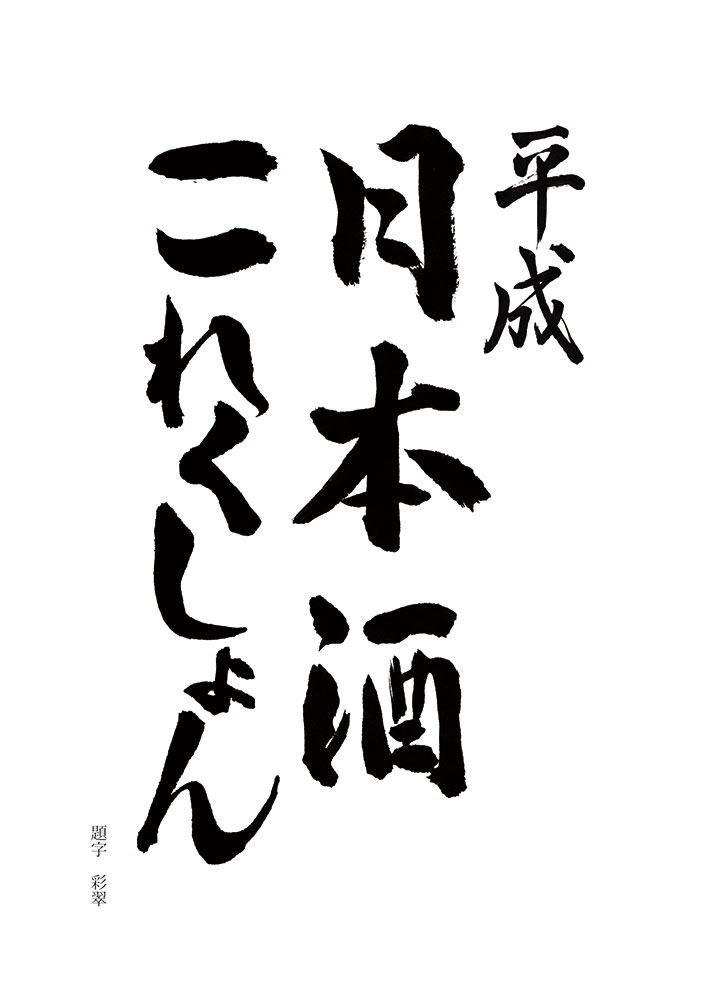 平成
日本酒
これくしょん
題字 彩翠